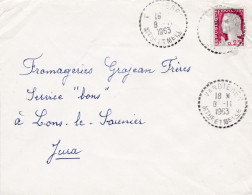 18
8 -11
1963
0,25
Fromageries Grosjean Frères
Service "bons"
à Lons-le-Saunier
Jura
18
8 -11
1963